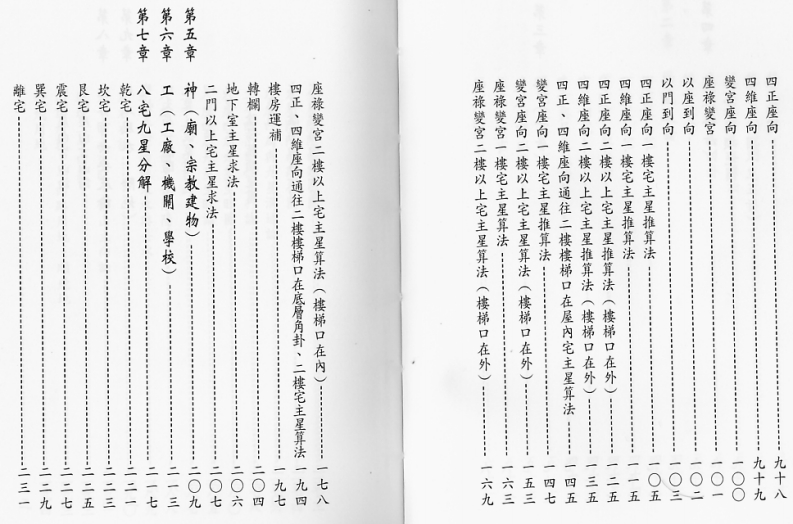 四正座向 九十八
四維座向 九十九
變宮座向 一〇〇
座祿變宮 一〇一
以座到向 一〇二
以門到向 一〇三
四正座向一樓宅主星推算法 一〇五
四維座向一樓宅主星推算法 一一五
四正座向二樓以上宅主星推算法（樓梯口在外） 一二五
四維座向二樓以上宅主星推算法（樓梯口在外） 一三五
四正、四維座向通往二樓樓梯口在屋內宅主星算法 一四五
變宮座向一樓宅主星推算法 一四七
變宮座向二樓以上宅主星算法（樓梯口在外） 一五三
座祿變宮一樓宅主星算法 一六三
座祿變宮二樓以上宅主星算法（樓梯口在外） 一六九
座祿變宮二樓以上宅主星算法（樓梯口在內） 一七八
四正、四維座向通往二樓樓梯口在底層角卦、二樓宅主星算法 一九四
樓房運補 一九七
轉欄 二〇四
地下室主星求法 二〇六
二門以上宅主星求法 二〇七
第五章 神（廟、宗教建物） 二〇九
第六章 工（工廠、機關、學校） 二一三
第七章 八宅九星分解 二一七
乾宅 二二一
坎宅 二二三
艮宅 二二五
震宅 二二七
巽宅 二二九
離宅 二三一